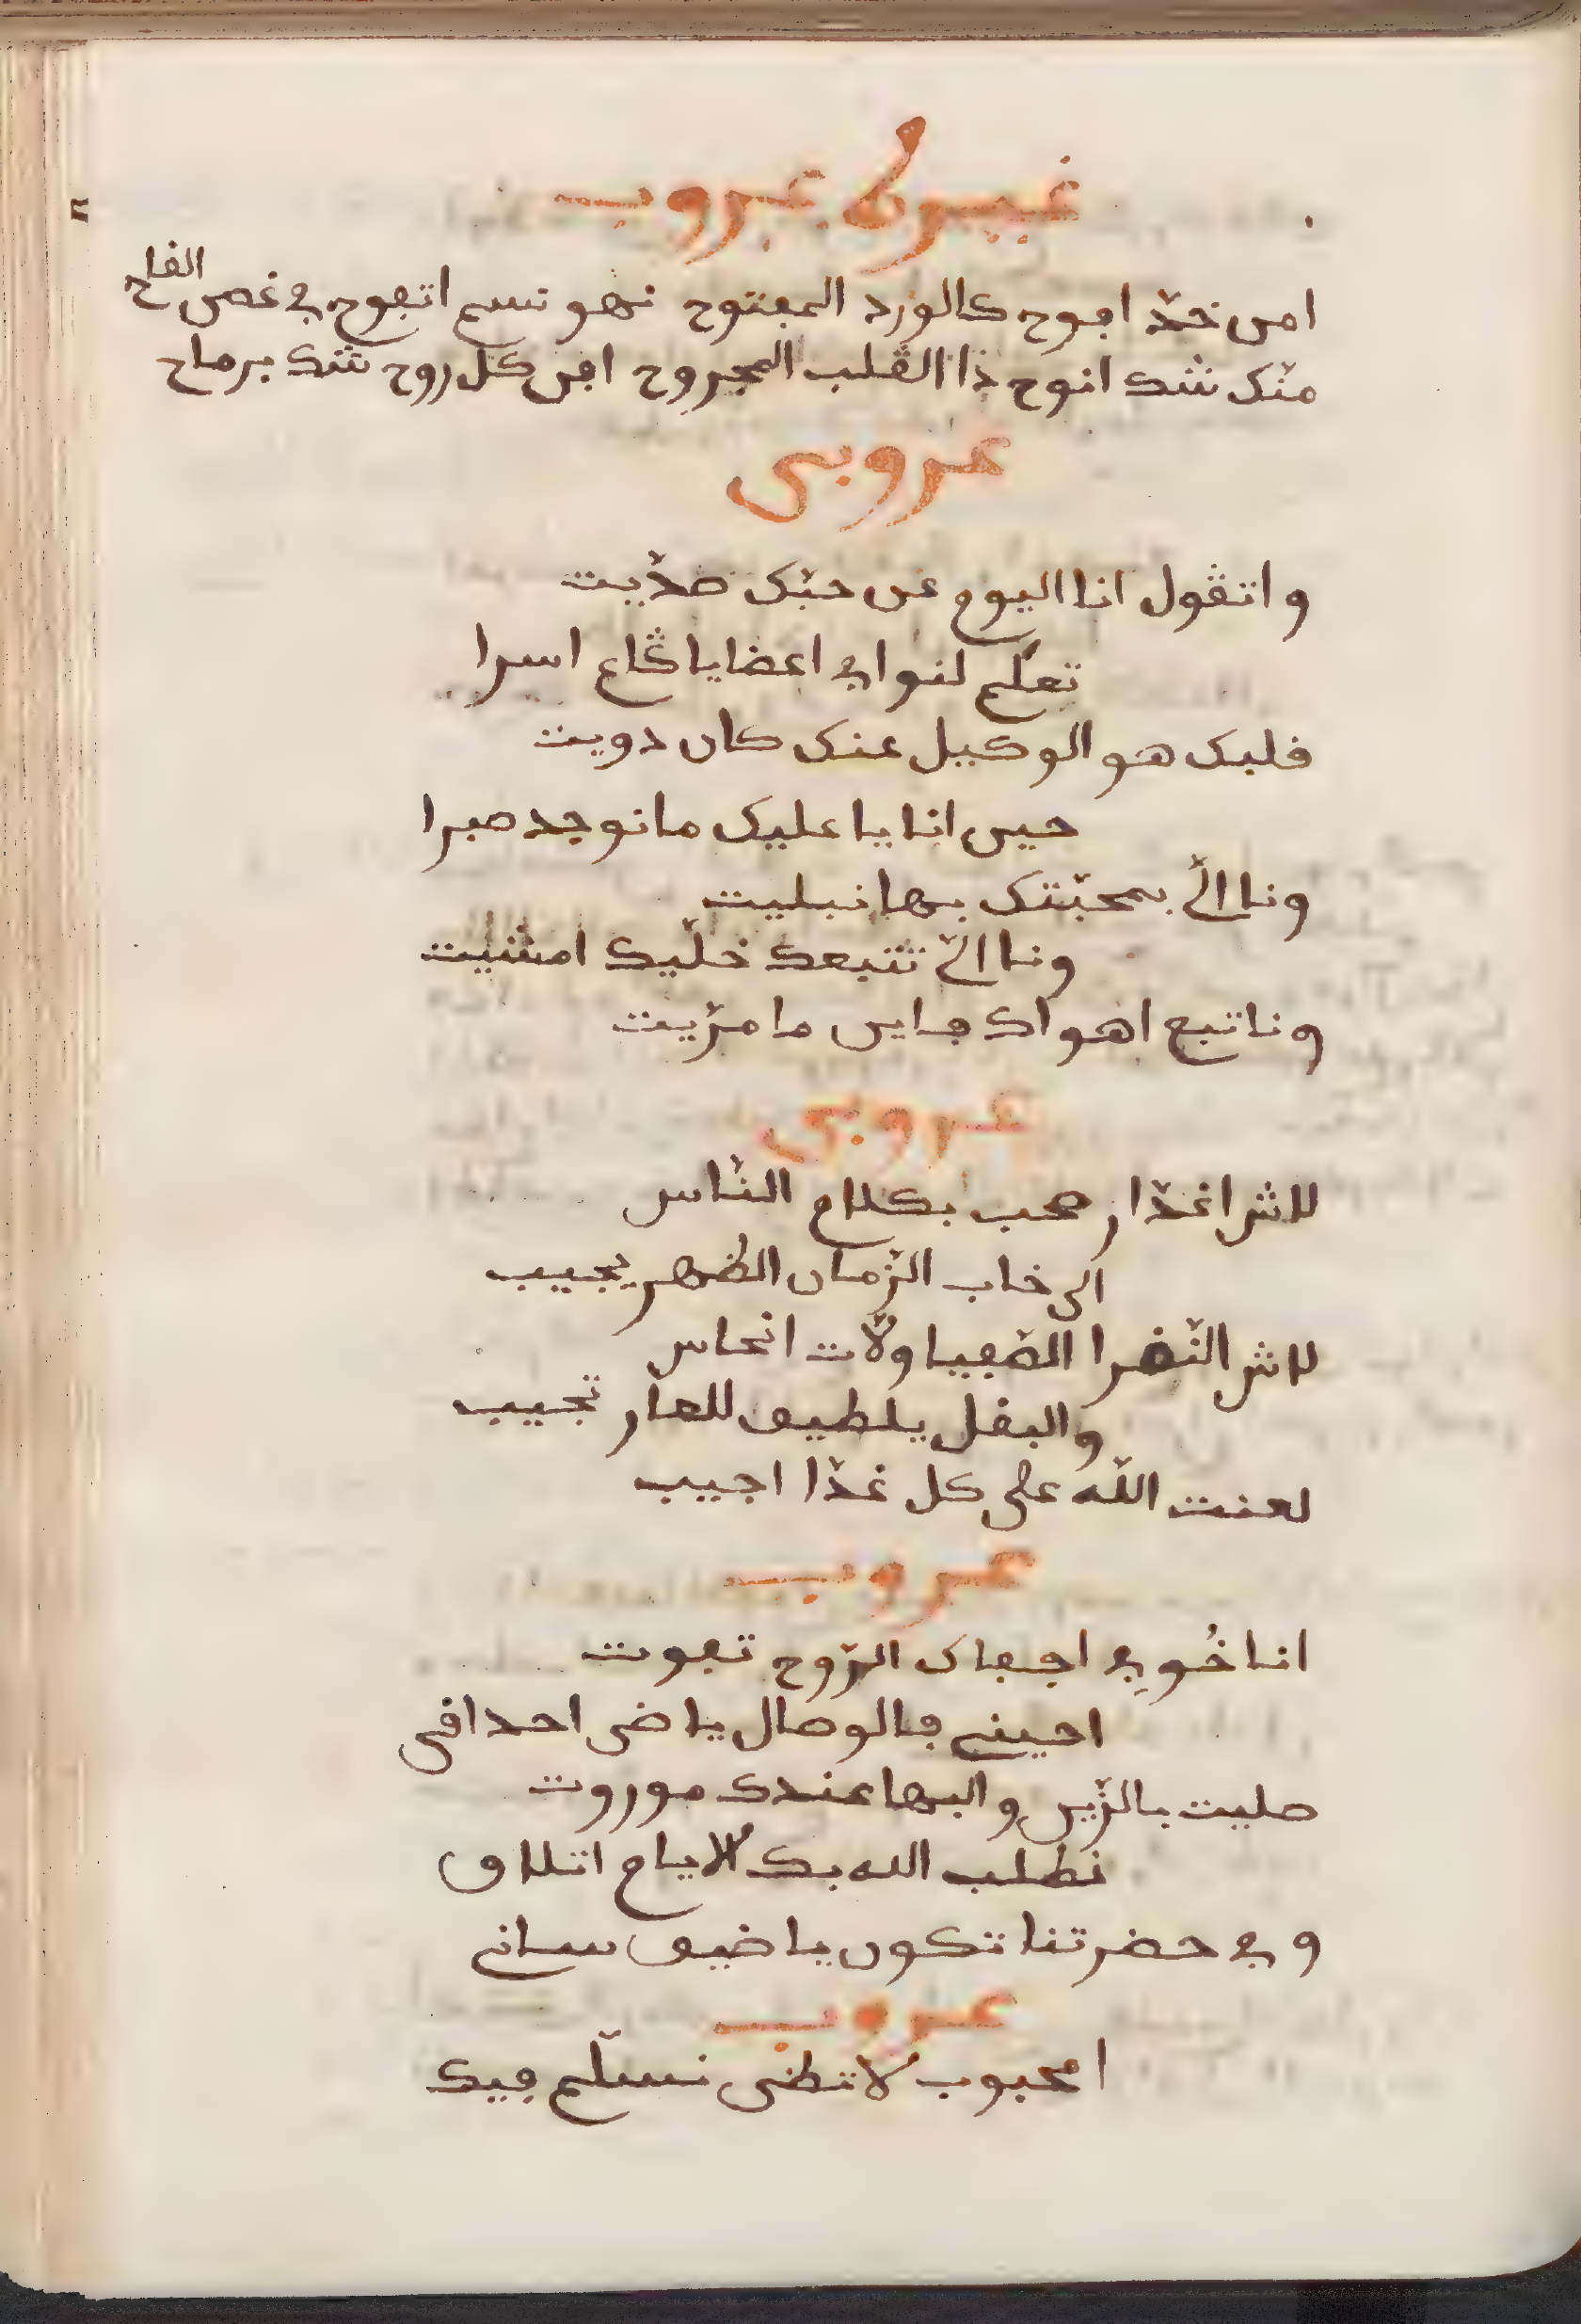 عروب
امن خدّ ابوح كالورد المفتوح نهو نسم اتفوح في غصن الفاح
منّك شك انوح ذا القلب المجروح افن كل روح شك برماح
عروبي
واتڨول انا اليوم عن حبّك صدّيت
تعلّم لنوا في اعضايا ڨاع اسرا
قلبك هو الوكيل عنك كان دويت
حين انايا عليك ما نوجد صبرا
ونا الّي بمحبّتك بها نبليت
ونا الّي نتبعك خلّيك امشيت
وناتبع اهواك فاين ما مرّيت
عروبي
لاش اغدّار صحب بكلام النّاس
الى خاب الزّمان الظهر يجيب
لاش النّضرا الصّعيبا ولّات انحاس
والبغل يلطيف للعار تجيب
لعنت اللّه على كل غدّا اجيب
عروب
انا خُو في اجفاك الرّوح تفوت
احيني بالوصال ياضي احداقي
صليت بالزّين والبها عندك موروت
نطلب الله بك لايام اتلاق
وفي حضرتنا تكون ياضيف ساني
عروب
امحبوب لا تظن نسلّم فيك